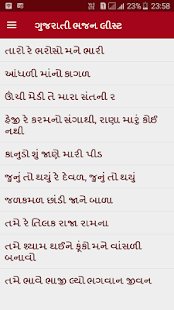 23:58
ગુજરાતી ભજન લીસ્ટ
તારો રે ભરોસો મને ભારી
આંધળી માંનો કાગળ
ઊંચી મેડી તે મારા સંતની ર
હેજી રે કરમનો સંગાથી, રાણા મારું કોઈ
નથી
કાનુડો શું જાણે મારી પીડ
જુનું તો થયું રે દેવળ, જુનું થયું
જળકમળ છાંડી જાને બાળા
તમે રે તિલક રાજા રામના
તમે શ્યામ થઈને ફૂંકો મને વાંસળી
બનાવો
તમે ભાવે ભાજી લ્યો ભગવાન જીવન